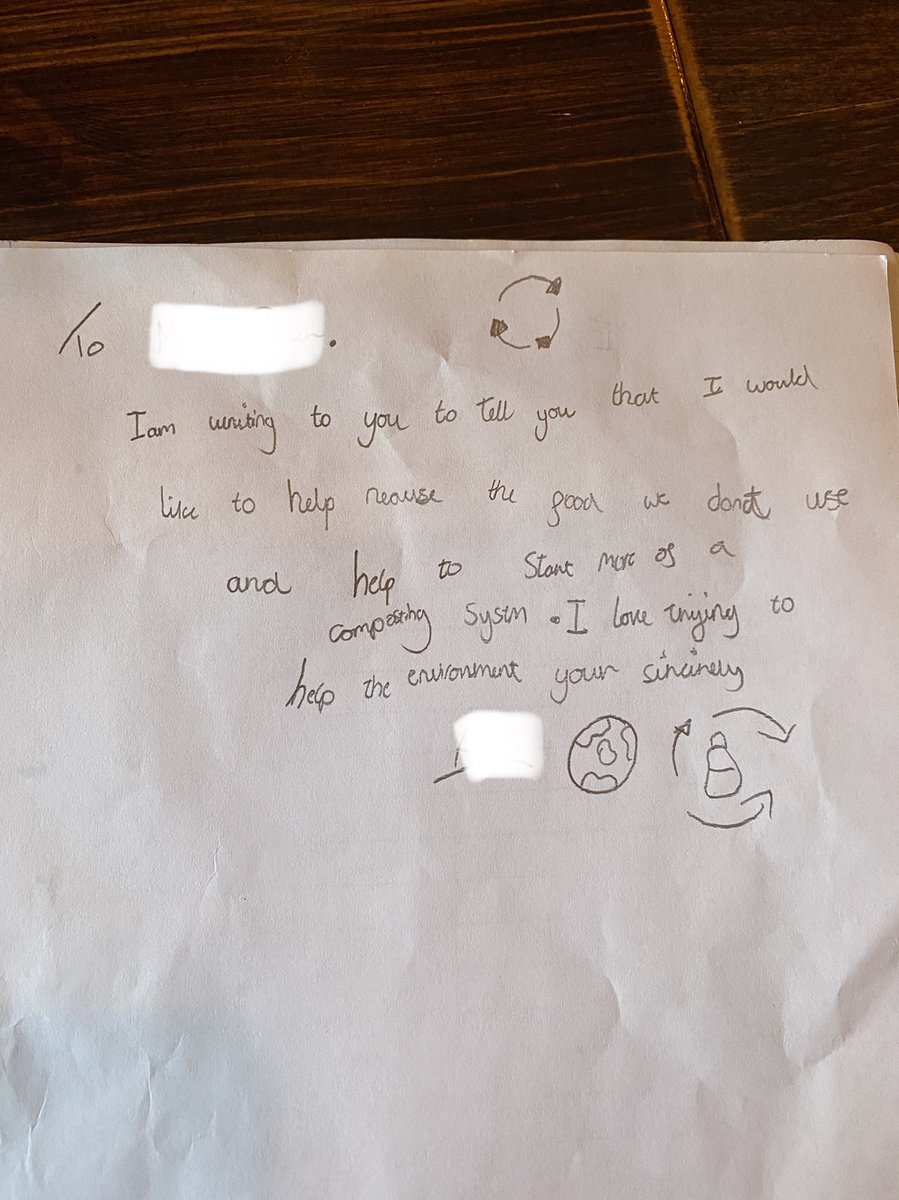 To
I am writing to you to tell you that I would
like to help reause the food we dont use
and help to start more of a
composting systm. I love trijing to
help the environment your sincinely